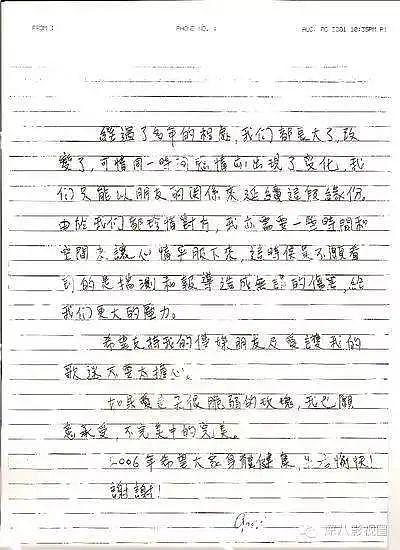 FROM :
PHONE NO. :
AUG. 06 2001 10:35PM P1
經過了多年的相處，我们都長大了，改
變了，可惜同一時间感情亦出現了变化，我
们只能以朋友的関係來延續這段緣份。
由於我们都珍惜對方，我亦需要一些時間和
空間去讓心情平服下來，這時候真不願看
到的是揣測和報導造成無謂的傷害，給
我们更大的壓力。
希望支持我的傳媒朋友及愛護我的
歌迷不要太擔心。
如果愛是朵很脆弱的玫瑰，我已願
意承受，不完美中的完美。
2006年希望大家身體健康，生活愉快！
謝謝！
深八影视圈